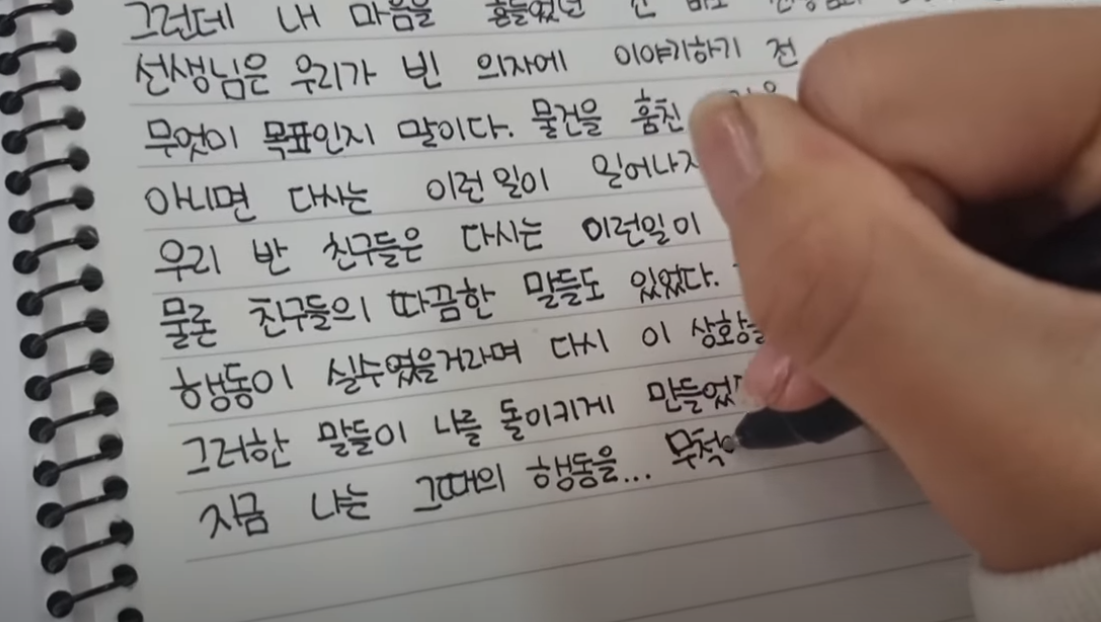 그런데 내 마음을 흔들었던
선생님은 우리가 빈 의자에 이야기하기 전
무엇이 목표인지 말이다. 물건을 훔친
아니면 다시는 이런 일이 일어나지
우리 반 친구들은 다시는 이런일이
물론 친구들의 따끔한 말들도 있었다.
행동이 실수였을거라며 다시 이 상황을
그러한 말들이 나를 돌이키게 만들었
지금 나는 그때의 행동을... 무척